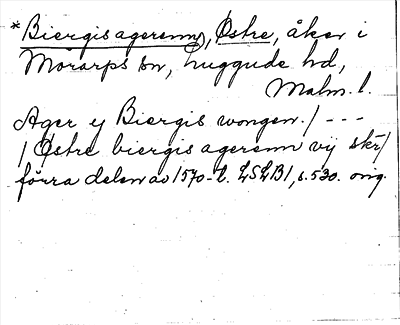 *Biergis agerenn, Østre, åker i
Mörarps sn, Luggude hd,
Malm. l.
Ager y Biergis wongen. / - - -
/ Østre biergis agerenn vij skr/
förra delen av 1570-t. LSLB1, s. 530. orig.